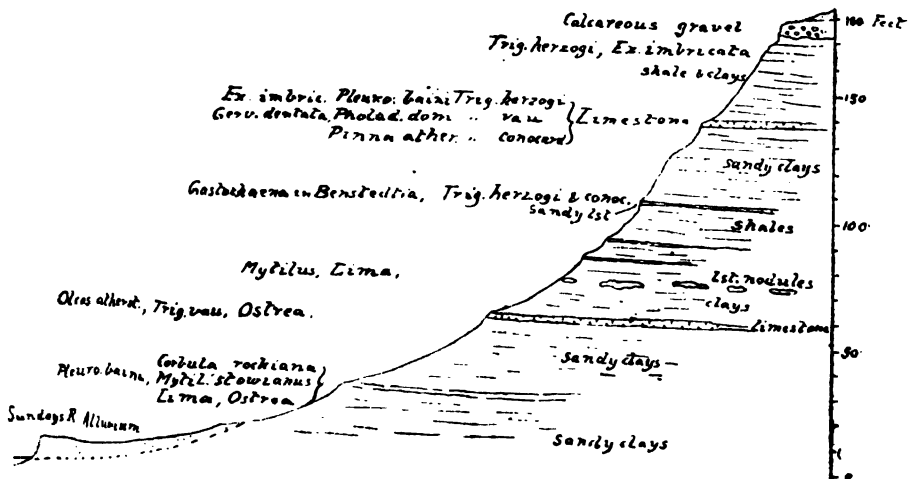 Calcareous gravel
180 Feet
Trig. herzogi, Ex. imbricata
shale & clays
150
Ex. imbric. Pleuro. baini Trig. herzogi
Gerv. dentata, Pholad. dom " vau
Pinna ather. " conocard
Limestone
sandy clays
Gastochaena in Benstedtia, Trig. herzogi & conoc.
Sandy lst
shales
100
Mytilus, Lima,
lst. nodules
clays
Olcos atherst., Trig. vau, Ostrea.
limestone
50
sandy clays
Corbula rockiana
Pleuro. baini, Mytil. stowianus
Lima, Ostrea
Sundays R Alluvium
sandy clays
0